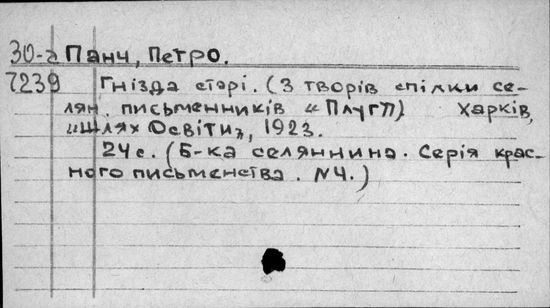 30-а Панч, Петро.
7239 Гнізда старі. (З творів спілки се-
лян. письменників „Плуг") Харків,
„Шлях Освіти", 1923.
24 с. (Б-ка селяннина. Серія крас-
ного письменства. №4.)